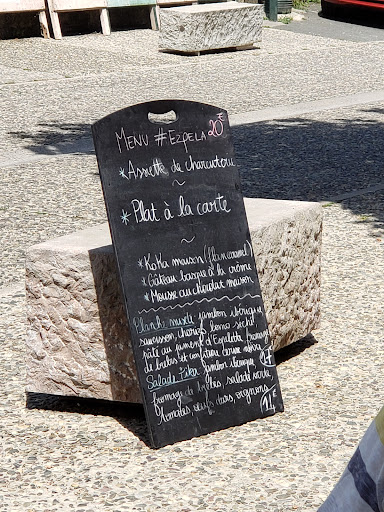 Menu #Ezpela 20€
*Assiette de charcuterie
~
*Plat à la carte
~
*KoKa maison (flan caramel)
*Gâteau basque à la crème
*Mousse au chocolat maison
Planche mixte jambon ibérique
saucisson, chorizo, lomo séché
pâté au piment d'Espelette, fromage
de brebis et confiture cerise noire 17€
Salade jambon
fromage de brebis, salade verte
tomates, œufs durs, oignons 14€